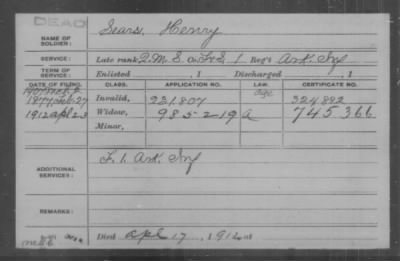 DEAD
NAME OF SOLDIER: Sears, Henry
SERVICE: Late rank Q.M.S. Co. F&S, 1 Reg't Ark Inf
TERM OF SERVICE: Enlisted , 1 Discharged , 1
DATE OF FILING. CLASS. APPLICATION NO. LAW. CERTIFICATE NO.
1907 Mch 2 Age
1877 Feb 27 Invalid, 231.807 324882
1912 Apl 23 Widow, 985219 a 745366
Minor,
ADDITIONAL SERVICES: F. 1. Ark. Inf
REMARKS:
Died Apl 17, 1912 at